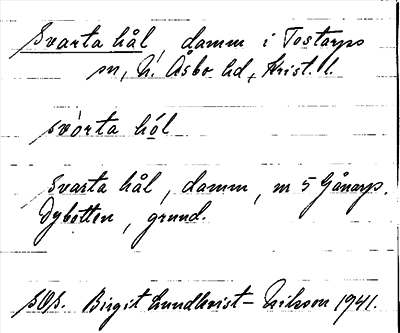 Svarta hål, damm i Tostarps
sn, N. Åsbo hd, Krist. l.
svòrta hól
Svarta hål, damm, nr 5 Gånarp.
Dybotten, grund.
Birgit Lundkvist-Nilsson 1941.